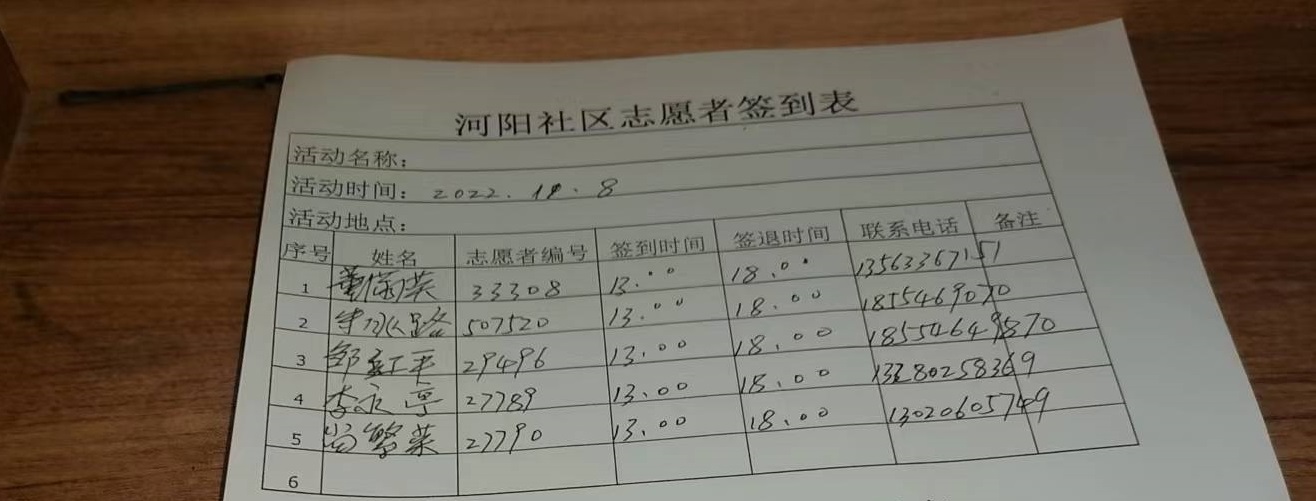 河阳社区志愿者签到表
活动名称：
活动时间：2022. . 8
活动地点：
序号 姓名 志愿者编号 签到时间 签退时间 联系电话 备注
1 33308 13.00 18.00 13563367151
2 507520 13.00 18.00 1855469070
3 邹红平 29496 13.00 18.00
4 李永亭 27789 13.00 18.00
5 27790 13.00 18.00 13020605749
6